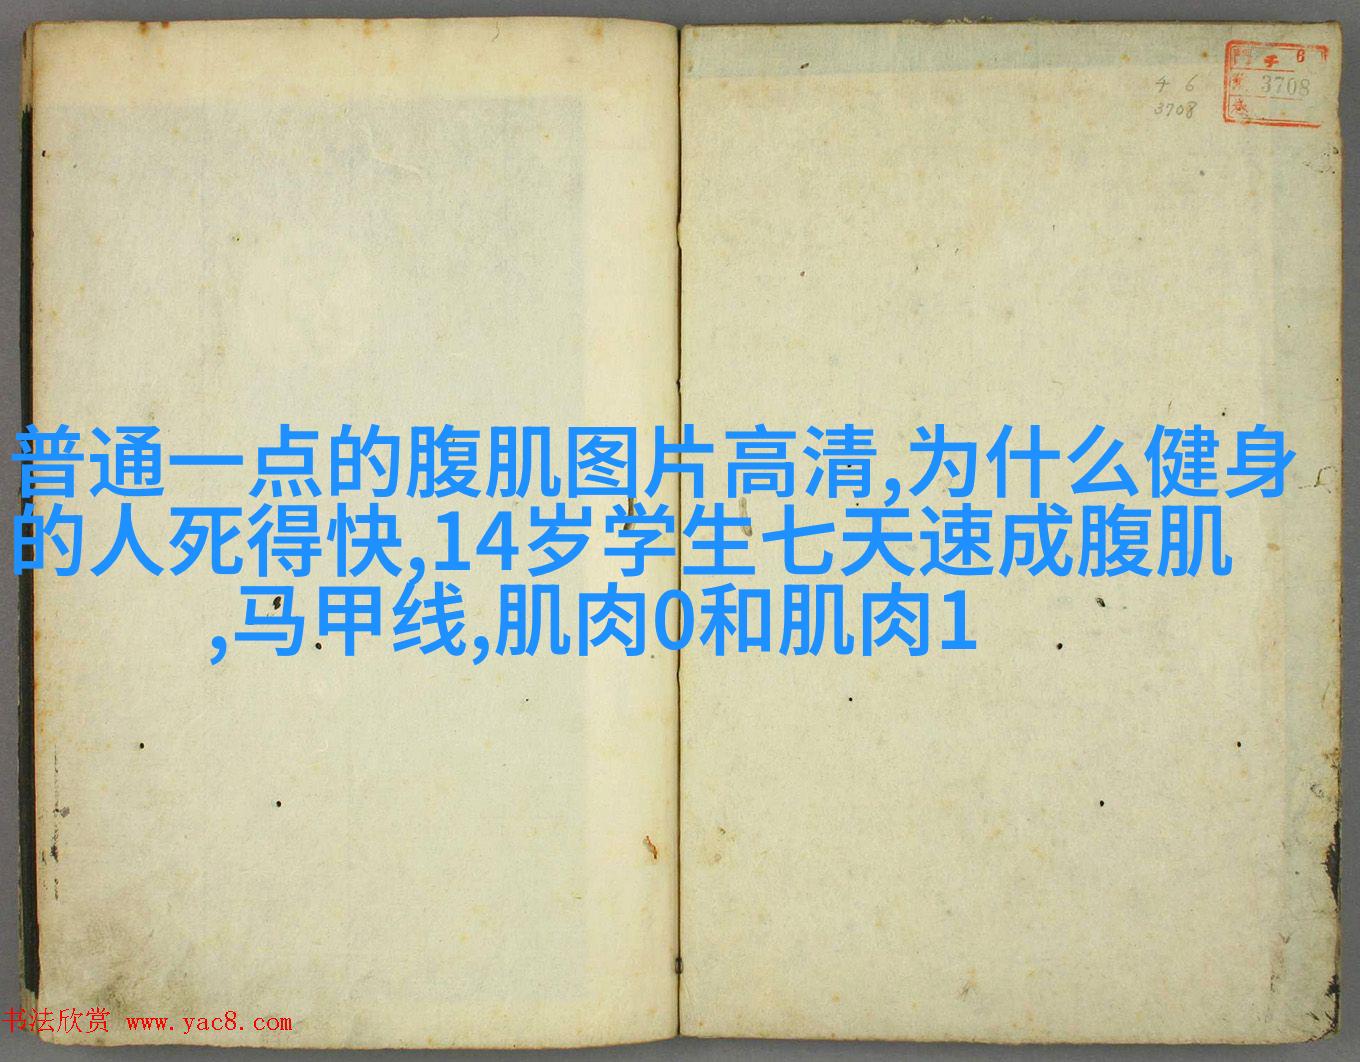 6
3708
4 6
3708
普通一点的腹肌图片高清,为什么健身
的人死得快,14岁学生七天速成腹肌
,马甲线,肌肉0和肌肉1
书法欣赏 www.yac8.com